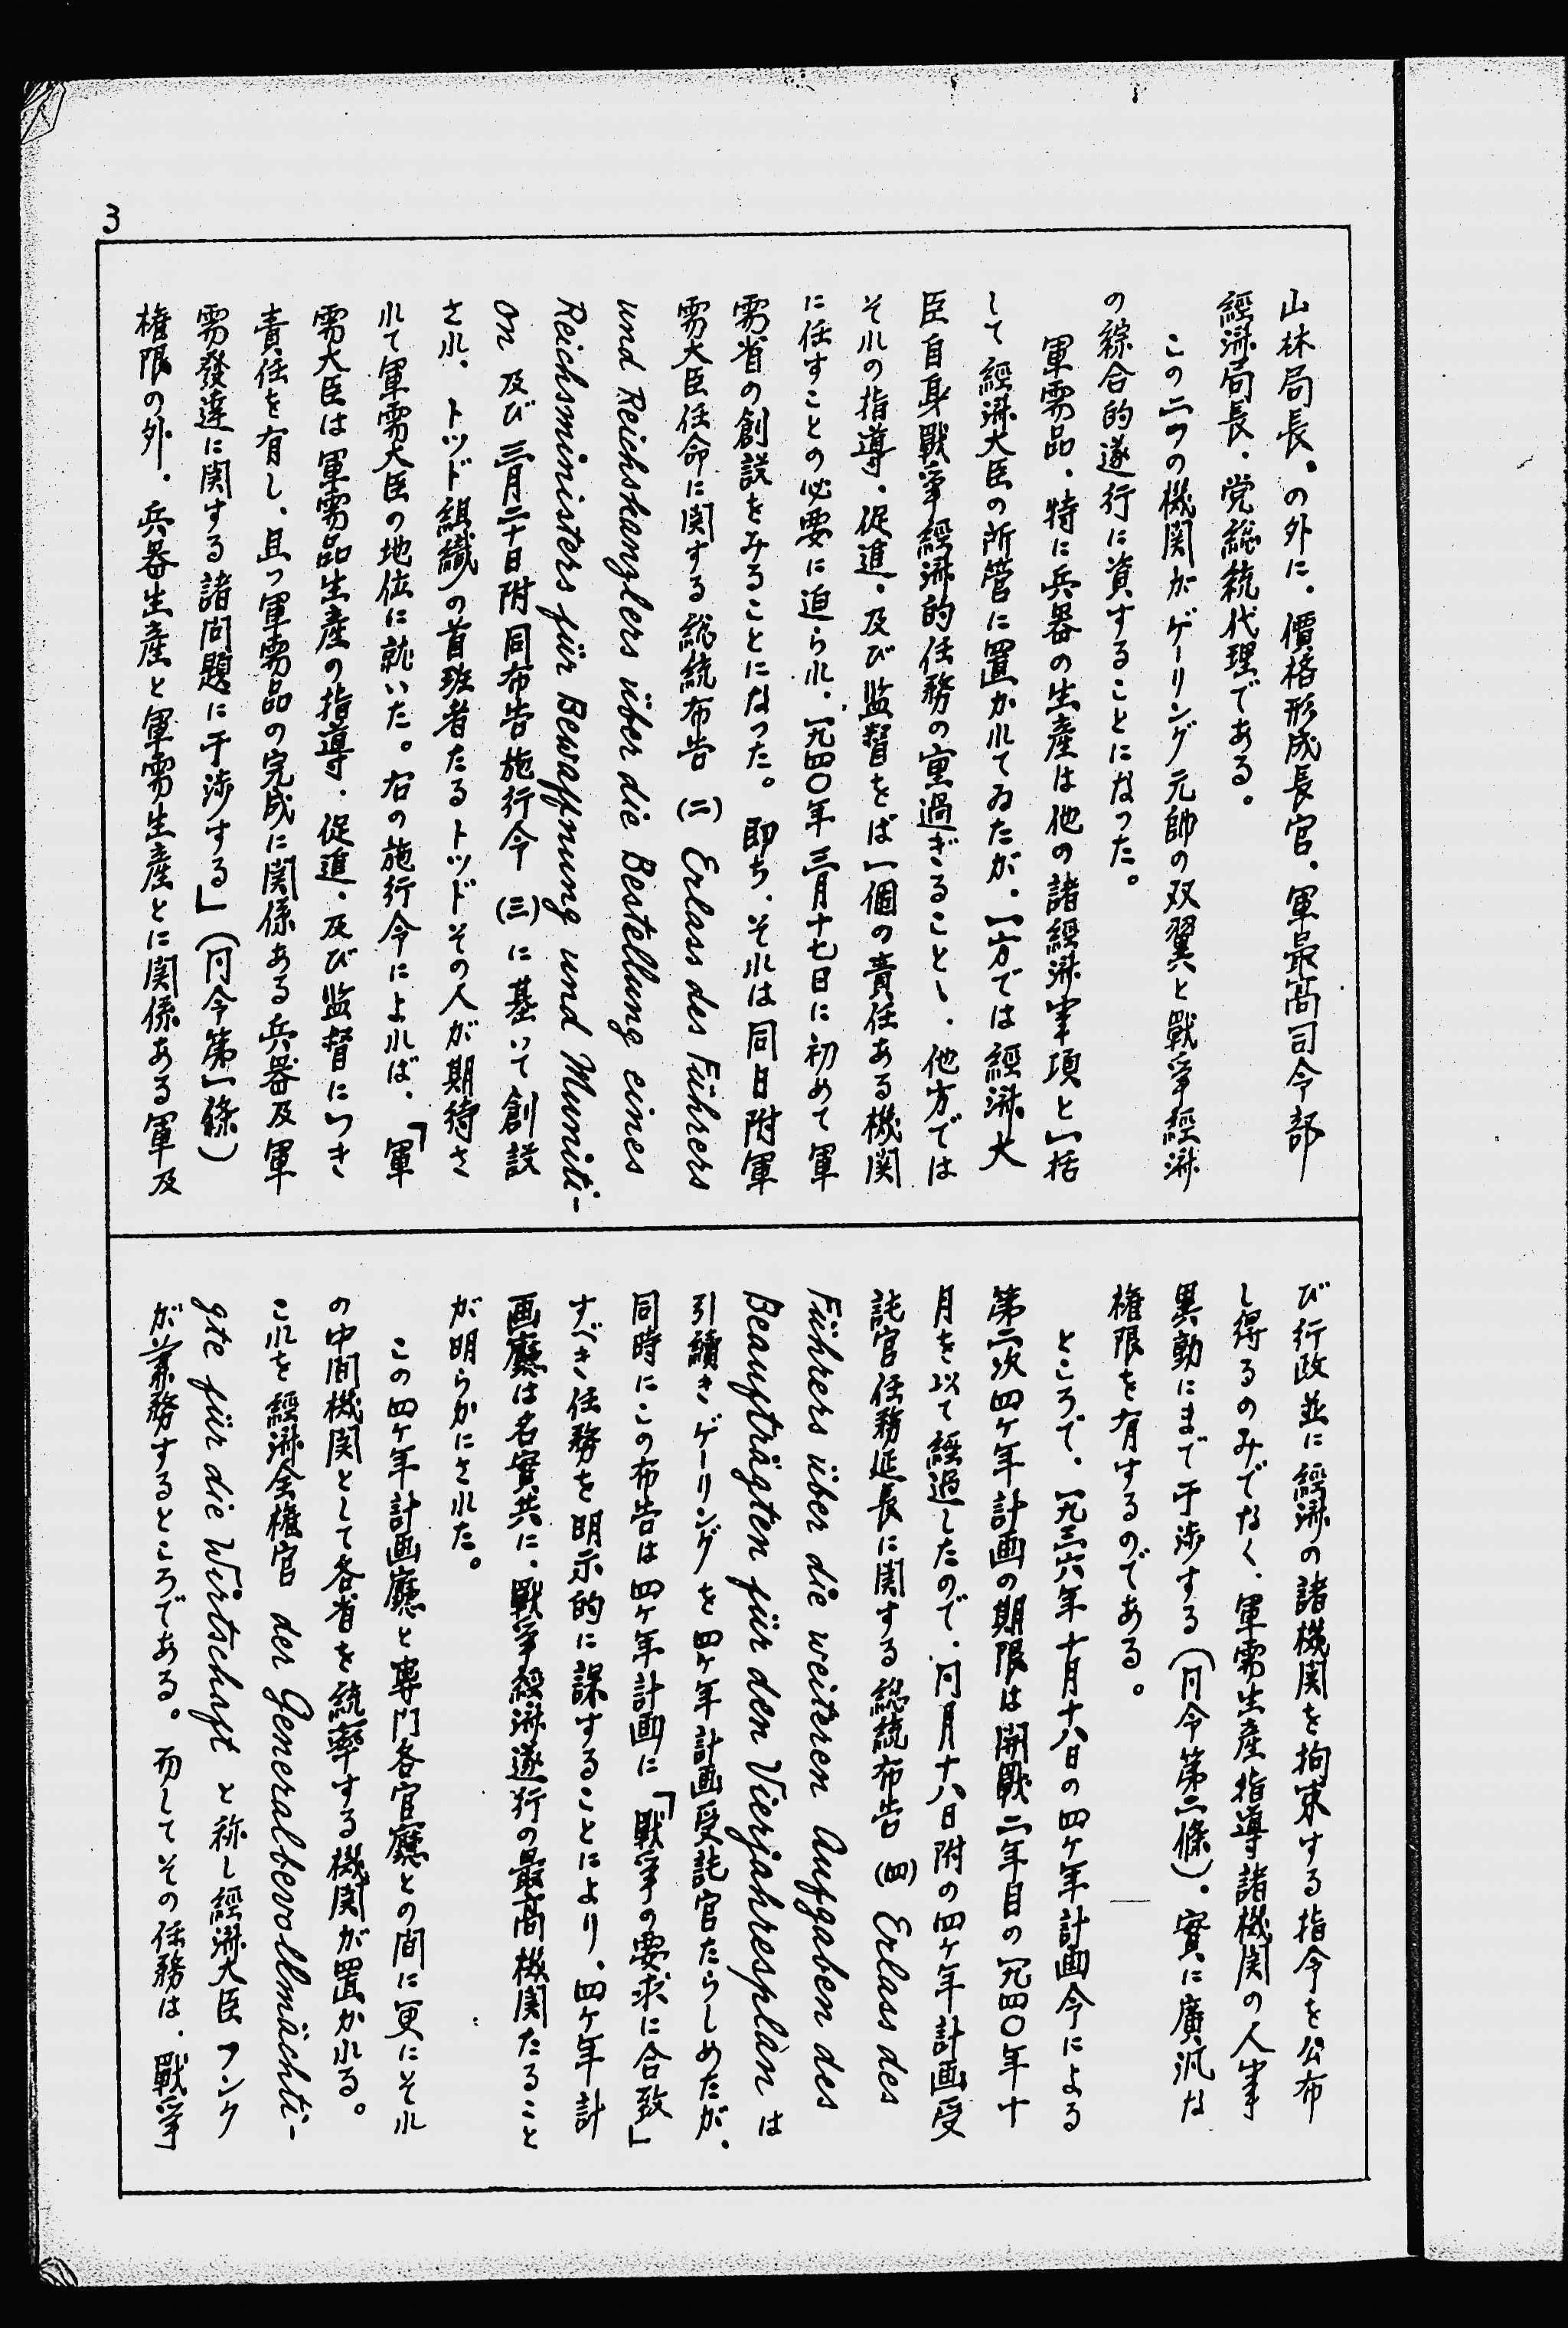 3
山林局長。の外に、價格形成長官、軍最高司令部
經済局長、党総統代理である。
この二つの機関がゲーリング元帥の双翼と戰爭經済
の綜合的遂行に資することになった。
軍需品、特に兵器の生産は他の諸經済事項と一括
して經済大臣の所管に置かれてゐたが、一方では經済大
臣自身戰爭經済的任務の重過ぎること、、他方では
それの指導、促進、及び監督をば一個の責任ある機関
に任すことの必要に迫られ、一九四〇年三月十七日に初めて軍
需省の創設をみることになった。即ち、それは同日附軍
需大臣任命に関する総統布告(二) Erlass des Führers
und Reichskanzlers über die Bestellung eines
Reichsministers für Bewaffnung und Muniti-
on 及び三月二十日附同布告施行令(三)に基いて創設
され、トッド組織の首班者たるトッドその人が期待さ
れて軍需大臣の地位に就いた。右の施行令によれば、「軍
需大臣は軍需品生産の指導、促進、及び監督につき
責任を有し、且つ軍需品の完成に関係ある兵器及軍
需發達に関する諸問題に干渉する」(同令第一條)
権限の外、兵器生産と軍需生産とに関係ある軍及
び行政並に經済の諸機関を拘束する指令を公布
し得るのみでなく、軍需生産指導諸機関の人事
異動にまで干渉する(同令第二條)、實に廣汎な
権限を有するのである。
ところで、一九三六年十月十八日の四ヶ年計画令による
第二次四ヶ年計画の期限は開戰二年目の一九四〇年十
月を以て經過したので、同月十八日附の四ヶ年計画受
託官任務延長に関する総統布告(四) Erlass des
Führers über die weiteren Aufgaben des
Beaufträgten für den Vierjahresplan は
引續きゲーリングを四ヶ年計画受託官たらしめたが、
同時にこの布告は四ヶ年計画に「戰爭の要求に合致」
すべき任務を明示的に課することにより、四ヶ年計
画廳は名實共に、戰爭經済遂行の最高機関たること
が明らかにされた。
この四ヶ年計画廳と専門各官廳との間に更にそれ
の中間機関として各省を統率する機関が置かれる。
これを經済全権官 der Generalbevollmächti-
gte für die Wirtschaft と称し經済大臣フンク
が兼務するところである。而してその任務は、戰爭